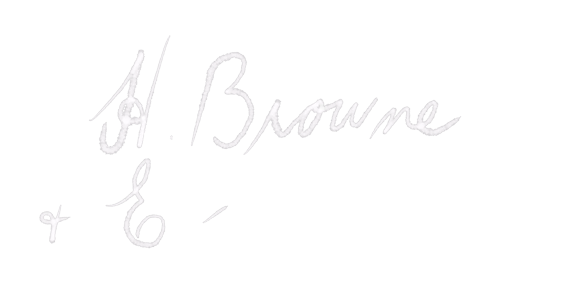 H. Browne
& E -